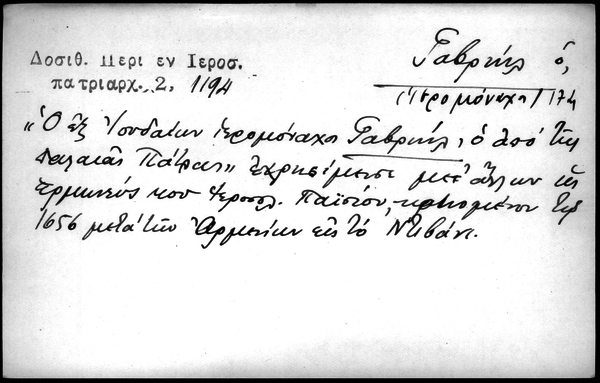 Δοσιθ. Περι εν Ιεροσ.
πατριαρχ. 2, 1194
Γαβριήλ ὁ,
ἱερομόναχος 174
"Ὁ ἐξ Ἰουδαίων ἱερομόναχος Γαβριήλ, ὁ ἀπό τῆς
Παλαιᾶς Πάτρας" ἐχρησίμευσε μετ' ἄλλων ὡς
ἑρμηνεύς τοῦ Ἱεροσολ. Παϊσίου, τῷ
1656 μετά τῶν Ἀρμενίων εἰς τό Ντιβάνι.